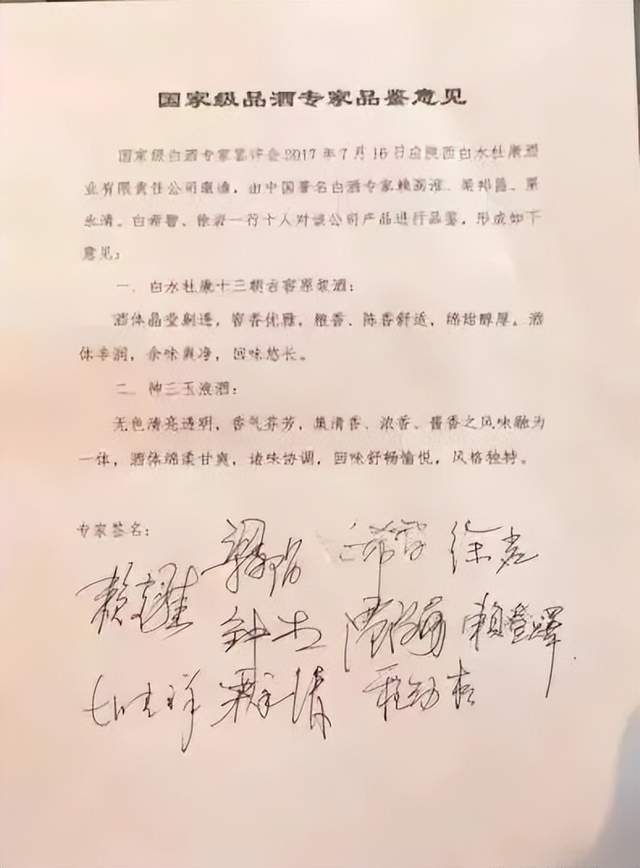 国家级品酒专家品鉴意见
国家级白酒专家鉴评会2017年7月16日应陕西白水杜康酒
业有限责任公司邀请，由中国著名白酒专家赖高淮、梁邦昌、栗
永清、白希智、徐岩一行十人对该公司产品进行品鉴，形成如下
意见：
一、白水杜康十三朝古窖原浆酒：
酒体晶莹剔透，窖香优雅，粮香、陈香舒适，绵甜醇厚，酒
体丰润，余味爽净，回味悠长。
二、神三玉液酒：
无色清亮透明，香气芬芳，集清香、浓香、酱香之风味融为
一体，酒体绵柔甘爽，诸味协调，回味舒畅愉悦，风格独特。
专家签名：
梁邦昌 希智 徐岩
赖高淮 钟杰 赖登燡
栗永清